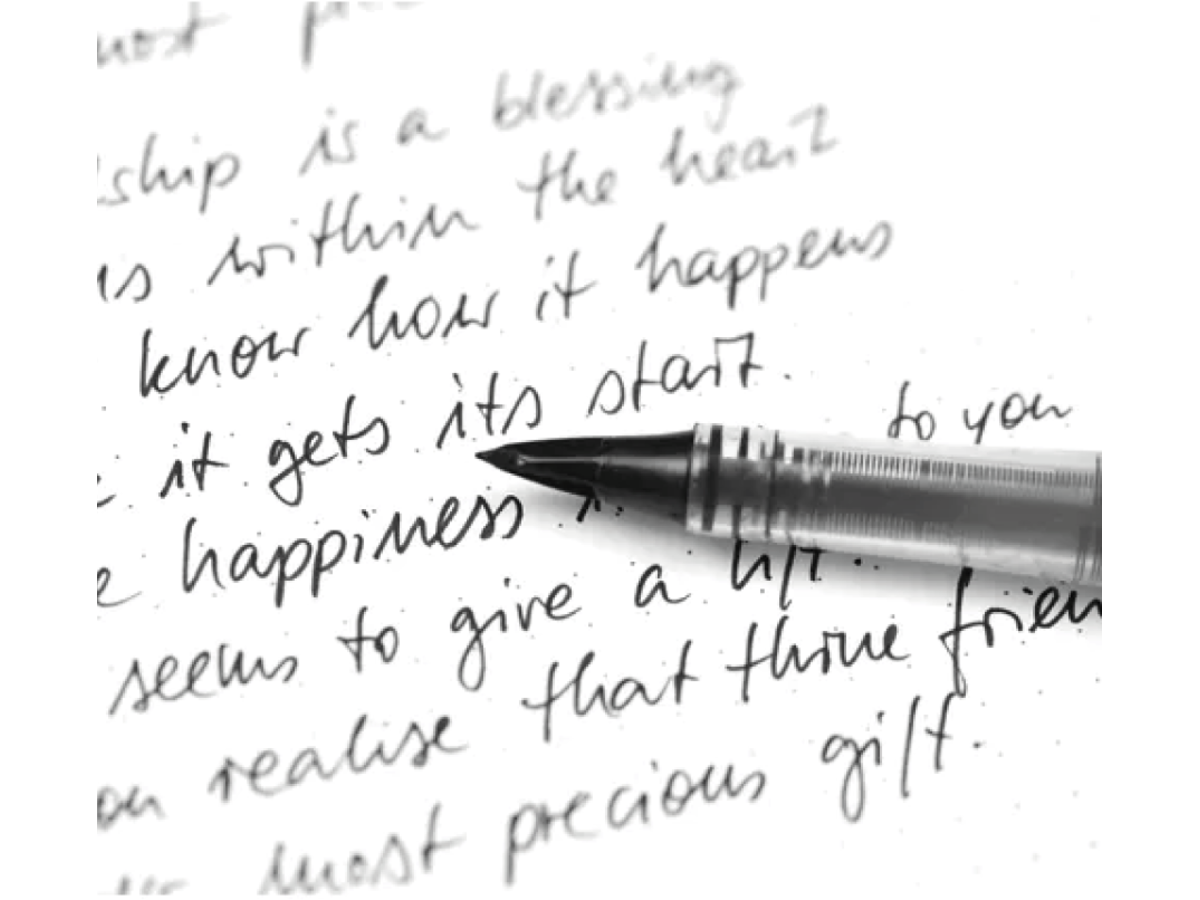 most
ship is a blessing
is within the heart
know how it happens
it gets its start.
happiness to you
seems to give a lift.
realise that thine frien
most precious gift.